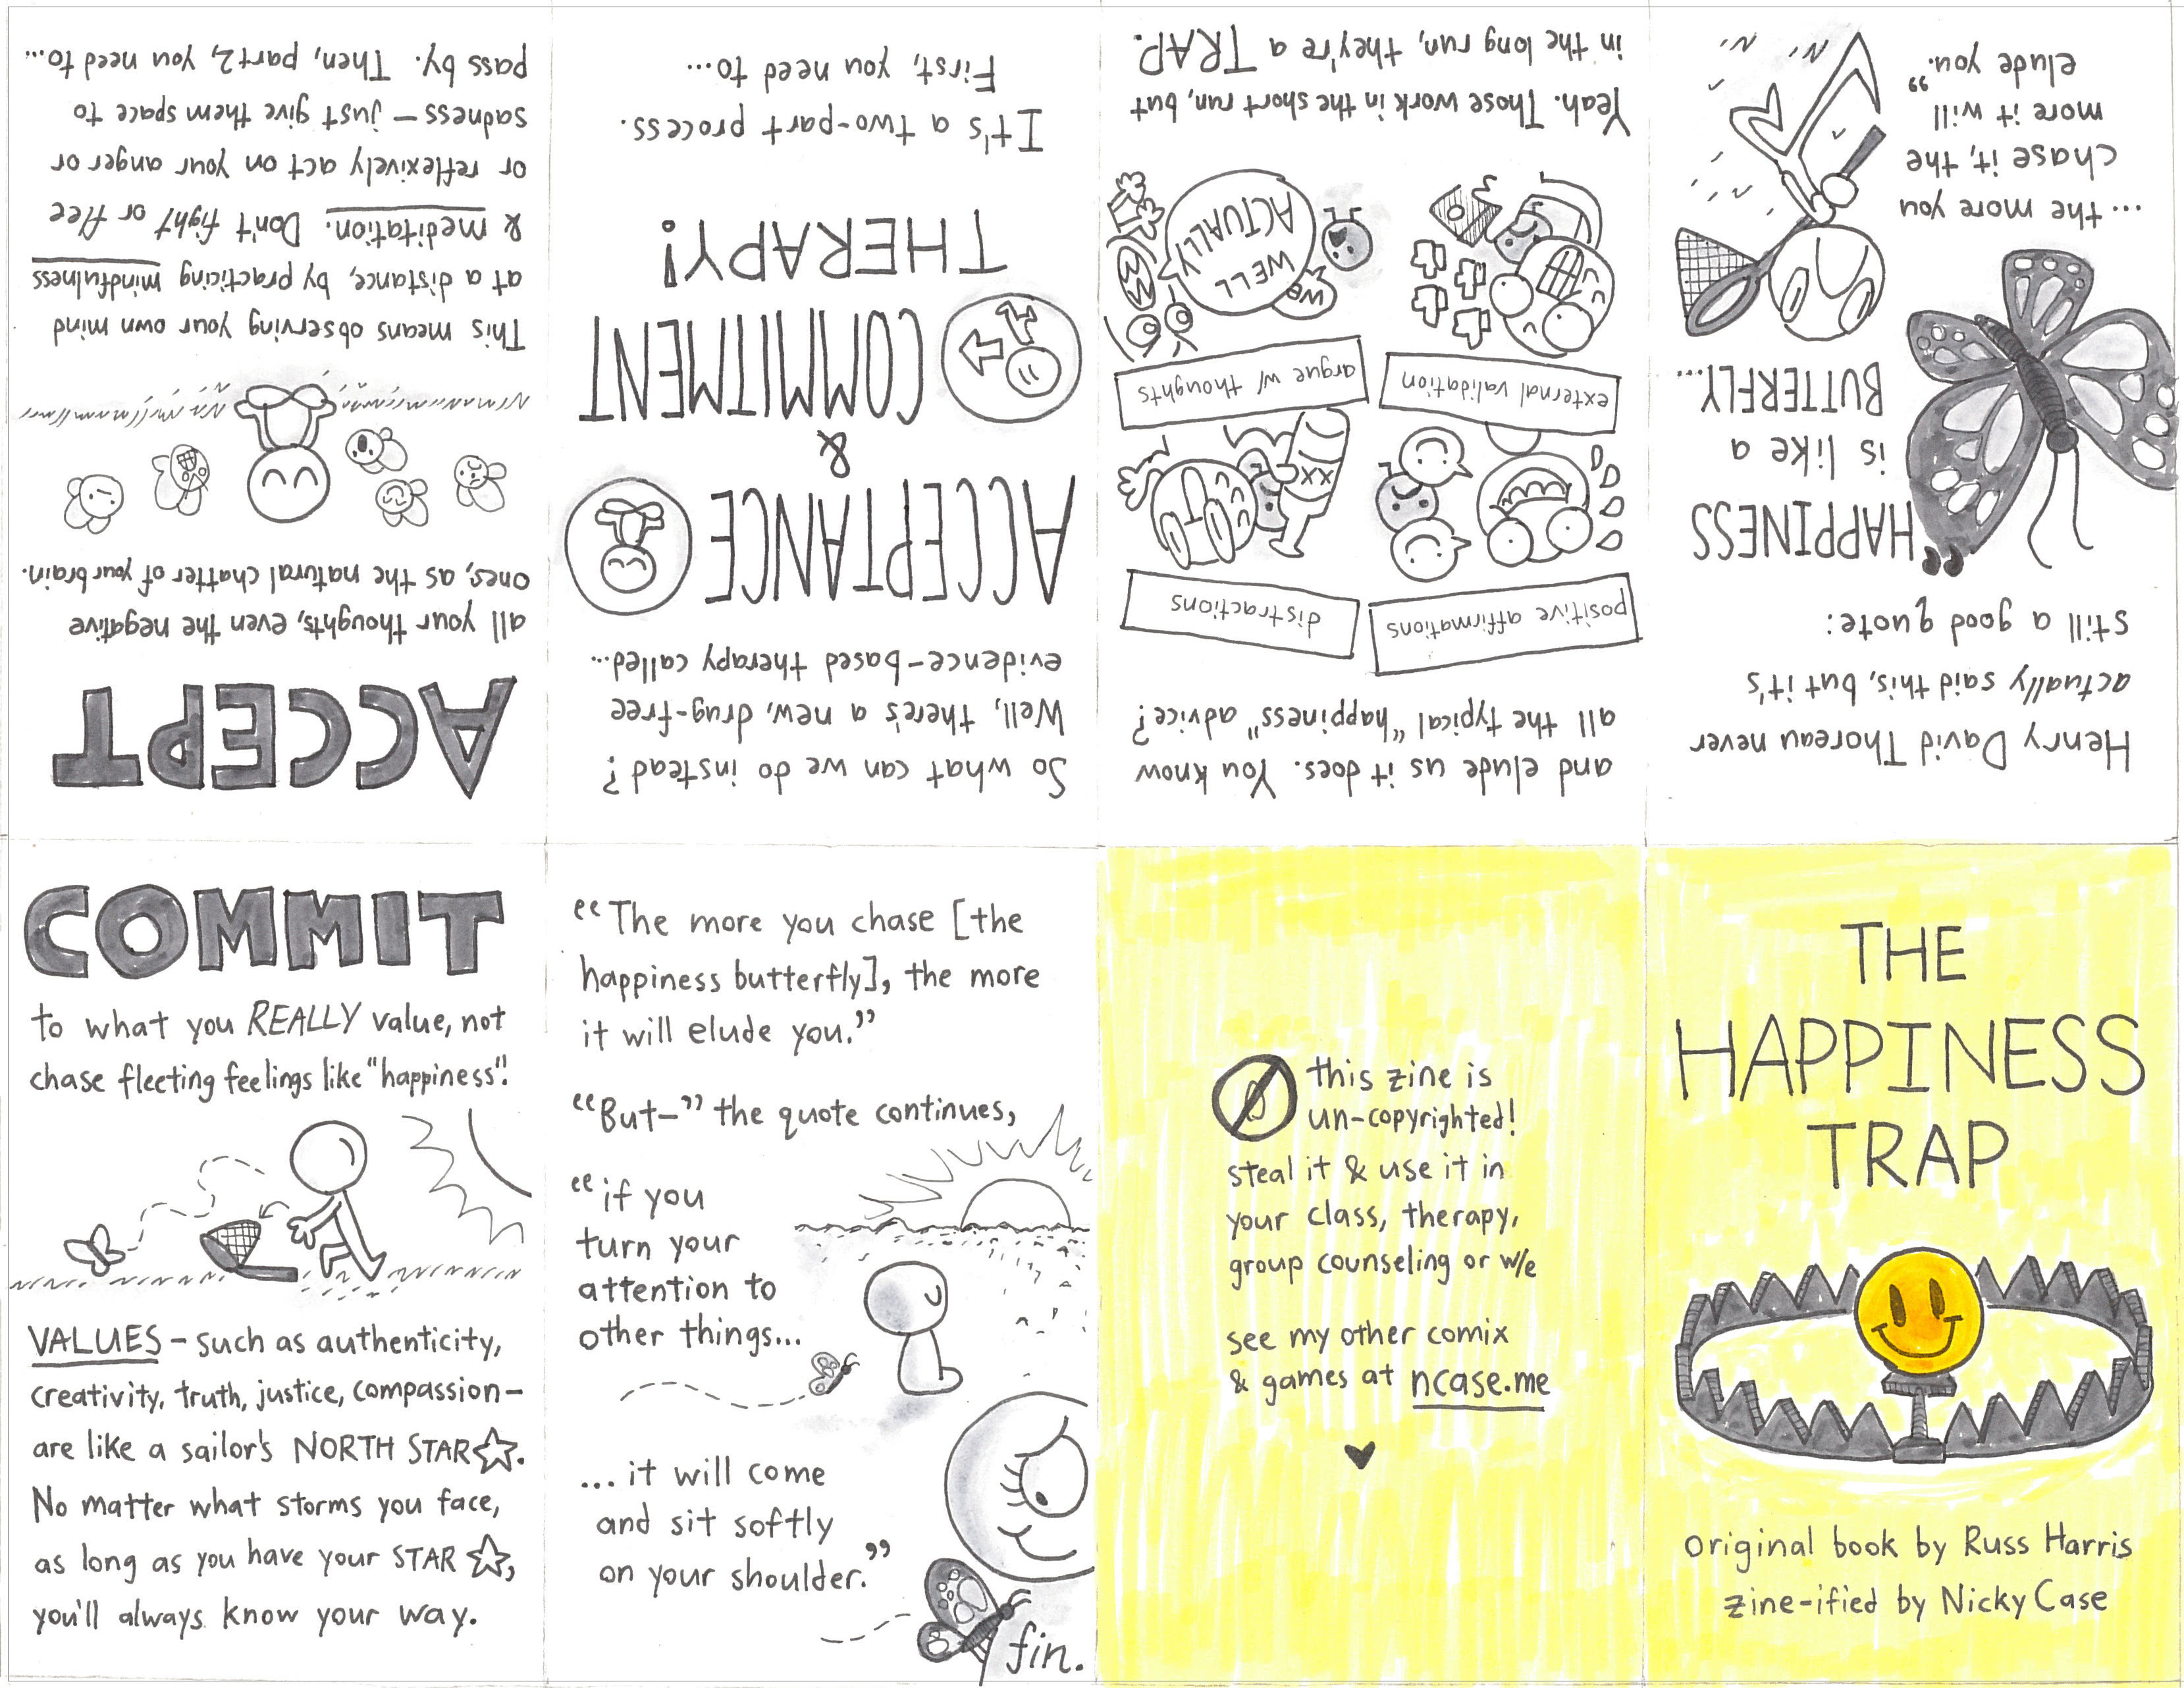 THE
HAPPINESS
TRAP
original book by Russ Harris
zine-ified by Nicky Case
Henry David Thoreau never
actually said this, but it's
still a good quote:
“HAPPINESS
is like a
BUTTERFLY...
...the more you
chase it, the
more it will
elude you.”
and elude us it does. You know
all the typical “happiness” advice?
positive affirmations
distractions
external validation
argue w/ thoughts
WELL
ACTUALLY
WE
Yeah. Those work in the short run, but
in the long run, they're a TRAP.
So what can we do instead?
Well, there's a new, drug-free
evidence-based therapy called...
ACCEPTANCE
&
COMMITMENT
THERAPY!
It's a two-part process.
First, you need to...
ACCEPT
all your thoughts, even the negative
ones, as the natural chatter of your brain.
This means observing your own mind
at a distance, by practicing mindfulness
& meditation. Don't fight or flee
or reflexively act on your anger or
sadness – just give them space to
pass by. Then, part 2, you need to...
COMMIT
to what you REALLY value, not
chase fleeting feelings like "happiness".
VALUES – such as authenticity,
creativity, truth, justice, compassion –
are like a sailor's NORTH STAR☆.
No matter what storms you face,
as long as you have your STAR ☆,
you'll always know your way.
“The more you chase [the
happiness butterfly], the more
it will elude you.”
“But–” the quote continues,
“if you
turn your
attention to
other things...
...it will come
and sit softly
on your shoulder.”
fin.
this zine is
un-copyrighted!
steal it & use it in
your class, therapy,
group counseling or w/e
see my other comix
& games at ncase.me
♥